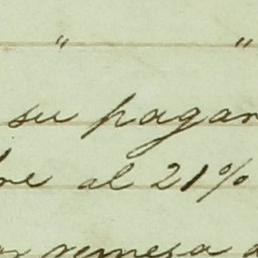 " "
su pagar
re al 21%
or remesa a